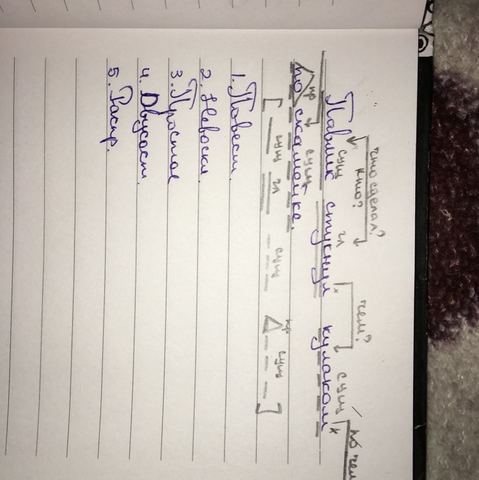 что сделал? чем? по чем
кто?
сущ гл сущ
Павлик стукнул кулаком
пр сущ
по скамейке.
[ сущ гл сущ пр сущ ]
1. Повест.
2. Невоскл.
3. Простое
4. Двусост.
5. Распр.